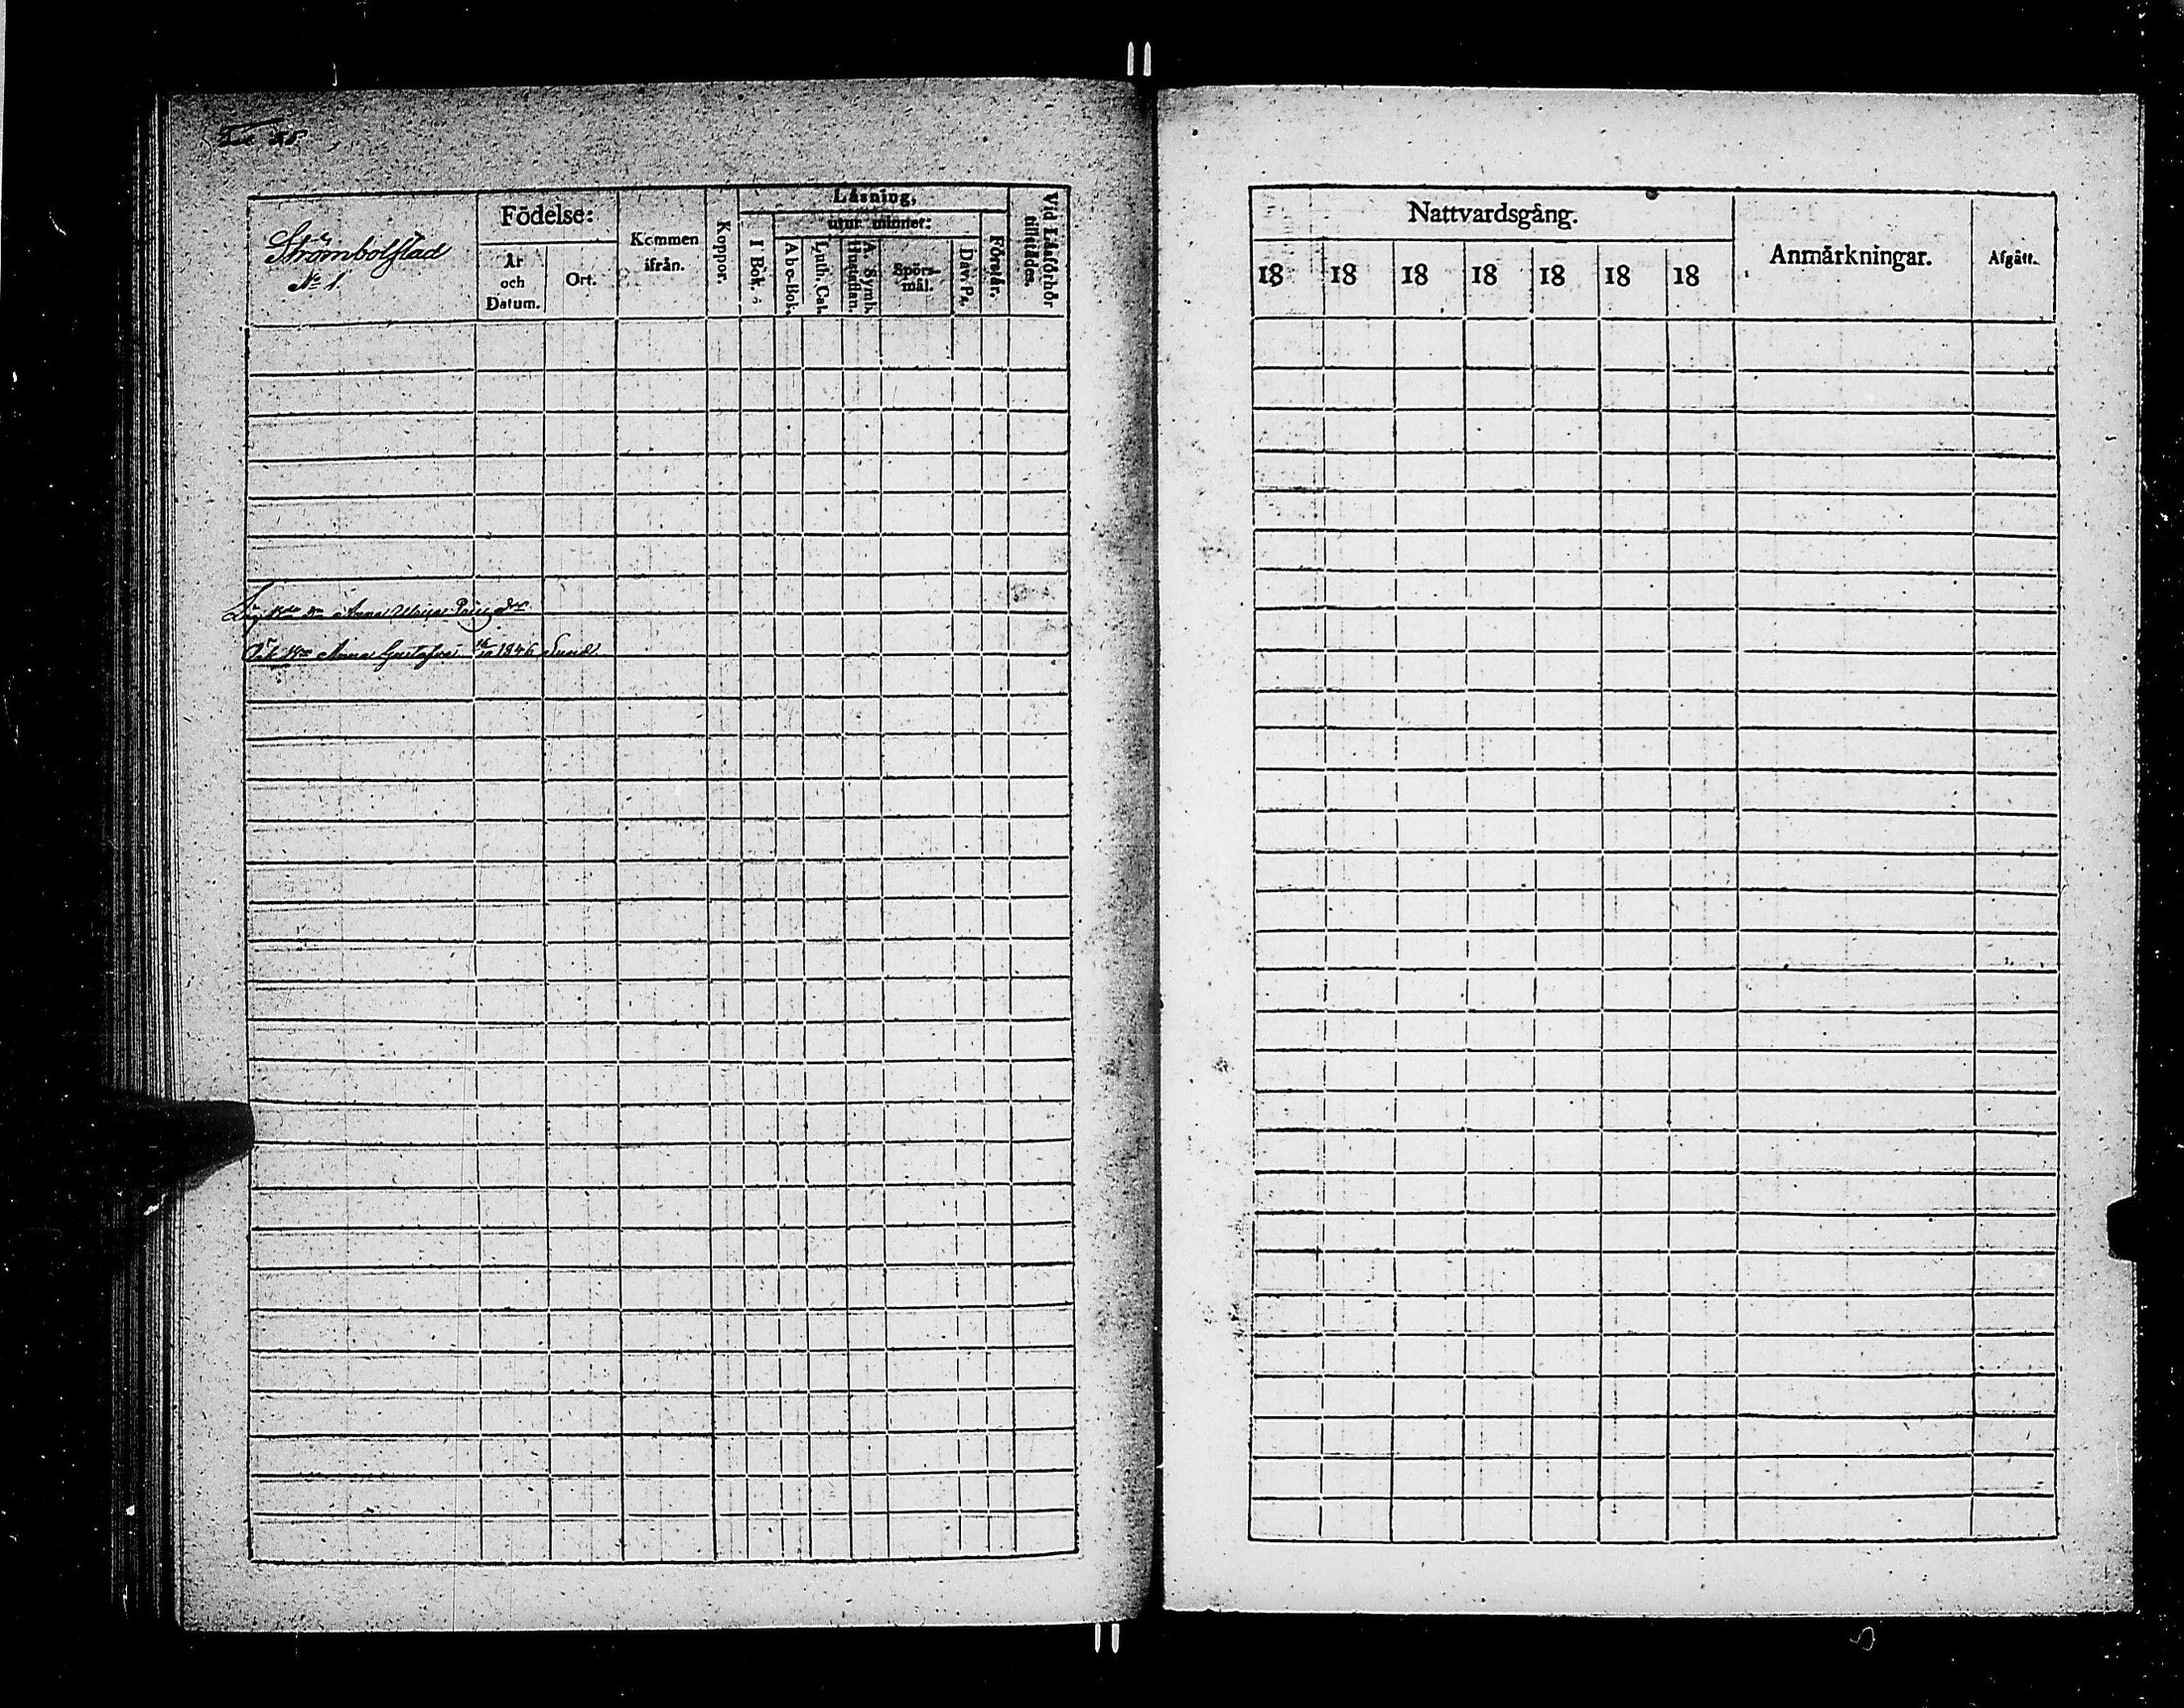 Strömbolstad
No 1.
Födelse:
År
och
Datum.
Ort.
Kommen
ifrån.
Koppor.
Låsning,
utur minnet:
I Bok.
Abc-Bok.
Luth. Cat.
A. Symb.
Hustaflan.
Spörs-
mål.
Dav. Ps.
Förstår.
Vid Låsförhör
tillstådes.
Anna
Anna Gustafva 1846 Sund
Nattvardsgång.
18 18 18 18 18 18 18
Anmårkningar.
Afgått.